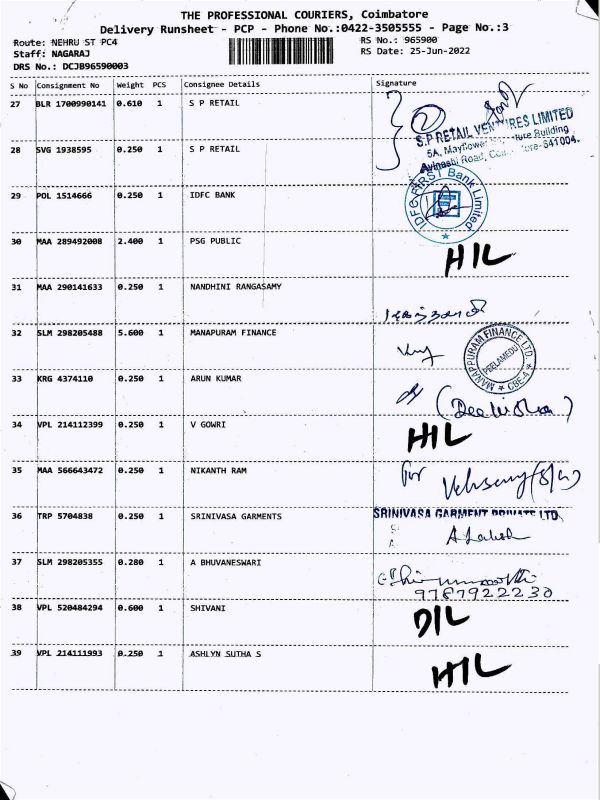 THE PROFESSIONAL COURIERS, Coimbatore
Delivery Runsheet - PCP - Phone No.:0422-3505555 - Page No.:3
Route: NEHRU ST PC4
RS No.: 965900
Staff: NAGARAJ
RS Date: 25-Jun-2022
DRS No.: DCJB96590003
S No Consignment No Weight PCS Consignee Details Signature
27 BLR 1700990141 0.610 1 S P RETAIL
S.P RETAIL VENTURES LIMITED
5A, Mayflower Building
28 SVG 1938595 0.250 1 S P RETAIL
Avinashi Road, 641004.
29 POL 1514666 0.250 1 IDFC BANK
IDFC FIRST Bank Limited
30 MAA 289492008 2.400 1 PSG PUBLIC
HIL
31 MAA 290141633 0.250 1 NANDHINI RANGASAMY
32 SLM 298205488 5.600 1 MANAPURAM FINANCE
MANAPPURAM FINANCE LTD.
PEELAMEDU
CBE-4
33 KRG 4374110 0.250 1 ARUN KUMAR
34 VPL 214112399 0.250 1 V GOWRI
HIL
35 MAA 566643472 0.250 1 NIKANTH RAM
For
36 TRP 5704838 0.250 1 SRINIVASA GARMENTS
SRINIVASA GARMENT PRIVATE LTD.
37 SLM 298205355 0.280 1 A BHUVANESWARI
9787922230
38 VPL 520484294 0.600 1 SHIVANI
D/L
39 VPL 214111993 0.250 1 ASHLYN SUTHA S
HIL